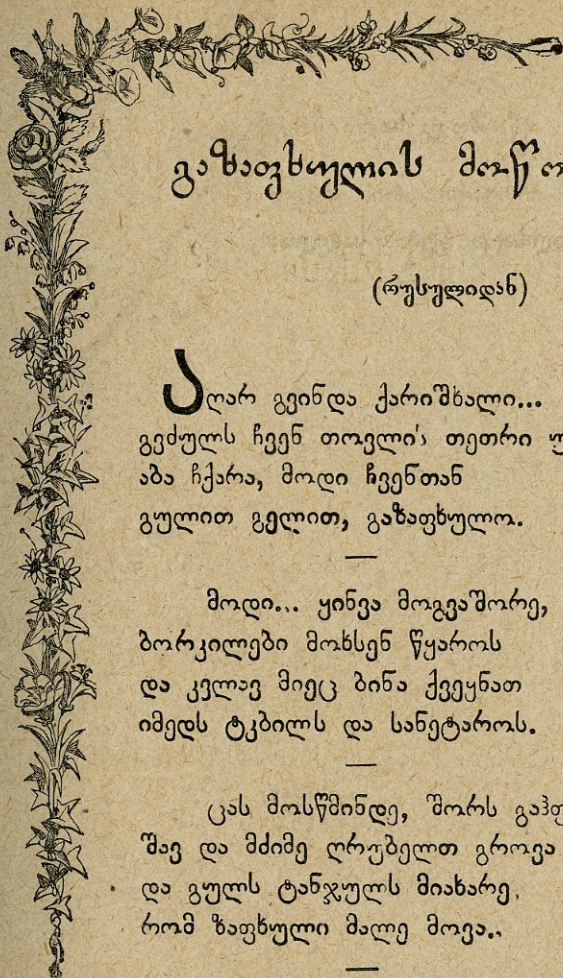 გაზაფხულის
(რუსულიდან)
აღარ გვინდა ქარიშხალი...
გვძულს ჩვენ თოვლის თეთრი
აბა ჩქარა, მოდი ჩვენთან
გულით გელით, გაზაფხულო.
მოდი... ყინვა მოგვაშორე,
ბორკილები მოხსენ წყაროს
და კვლავ მიეც ბინა ქვეყნათ
იმედს ტკბილს და სანეტაროს.
ცას მოსწმინდე, შორს
შავ და მძიმე ღრუბელთ გროვა
და გულს ტანჯულს მიახარე,
რომ ზაფხული მალე მოვა..